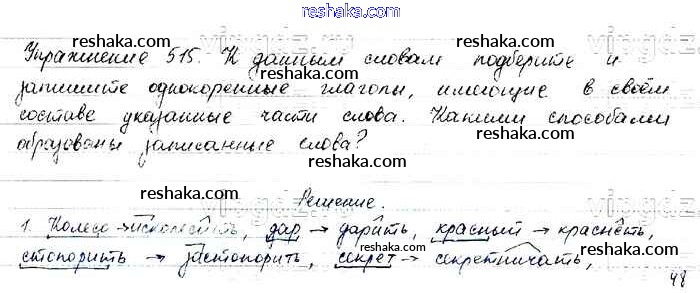 reshaka.com
Упражнение 515. К данным словам подберите и
запишите однокоренные глаголы, имеющие в своём
составе указанные части слова. Какими способами
образованы записанные слова?
Решение.
1. Колесо → исколесить, дар → дарить, красный → краснеть,
стопорить → застопорить, секрет → секретничать,
48